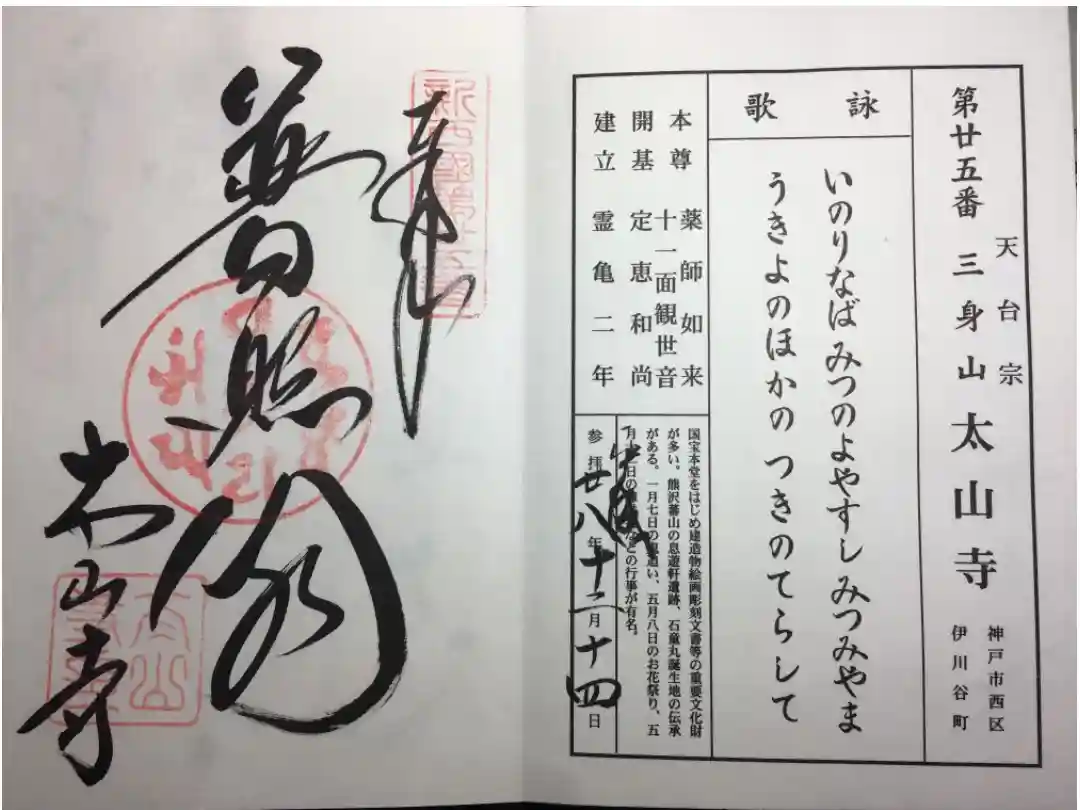 天台宗
第廿五番 三身山 太山寺
神戸市西区
伊川谷町
詠歌
いのりなば みつのよやすし みつみやま
うきよのほかの つきのてらして
本尊 薬師如来
十一面観世音
開基 定恵和尚
建立 霊亀二年
国宝本堂をはじめ建造物絵画彫刻文書等の重要文化財
が多い。熊沢蕃山の息遊軒遺跡、石童丸誕生地の伝承
がある。一月七日の鬼追い、五月八日のお花祭り、五
月十二日の などの行事が有名。
参拝 廿八年十二月十四日
奉拝
新西國第廿五番
普照閣
太山寺